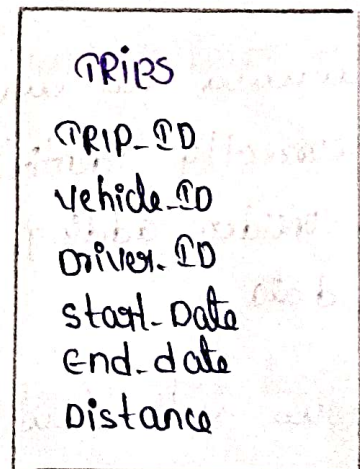 TRIPS
TRIP_ID
Vehicle_ID
Driver_ID
Start_Date
End_date
Distance